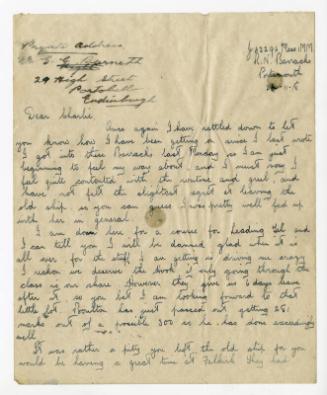 Private Address
29 High Street
Portobello
Edinburgh
R.N. Barracks
Portsmouth
Dear Charlie,
Once again I have settled down to let
you know how I have been getting on since I last wrote.
I got into these Barracks last Monday so I am just
beginning to feel my way about, and I must say I
feel quite contented with the routine and grub, and
have not felt the slightest regret at leaving the
old ship, so you can guess I was pretty well fed up
with her in general.
I am down here for a course for Leading Tel and
I can tell you I will be damned glad when it is
all over, for the stuff I am getting is driving me crazy
I reckon we deserve the hook if only going through the
class is our share. However they give us 6 days leave
after it so you bet I am looking forward to that
little lot. Poulton has just passed out getting 281
marks out of a possible 300 so he has done exceedingly
well
It was rather a pity you left the old ship for you
would be having a great time at Falkirk They had